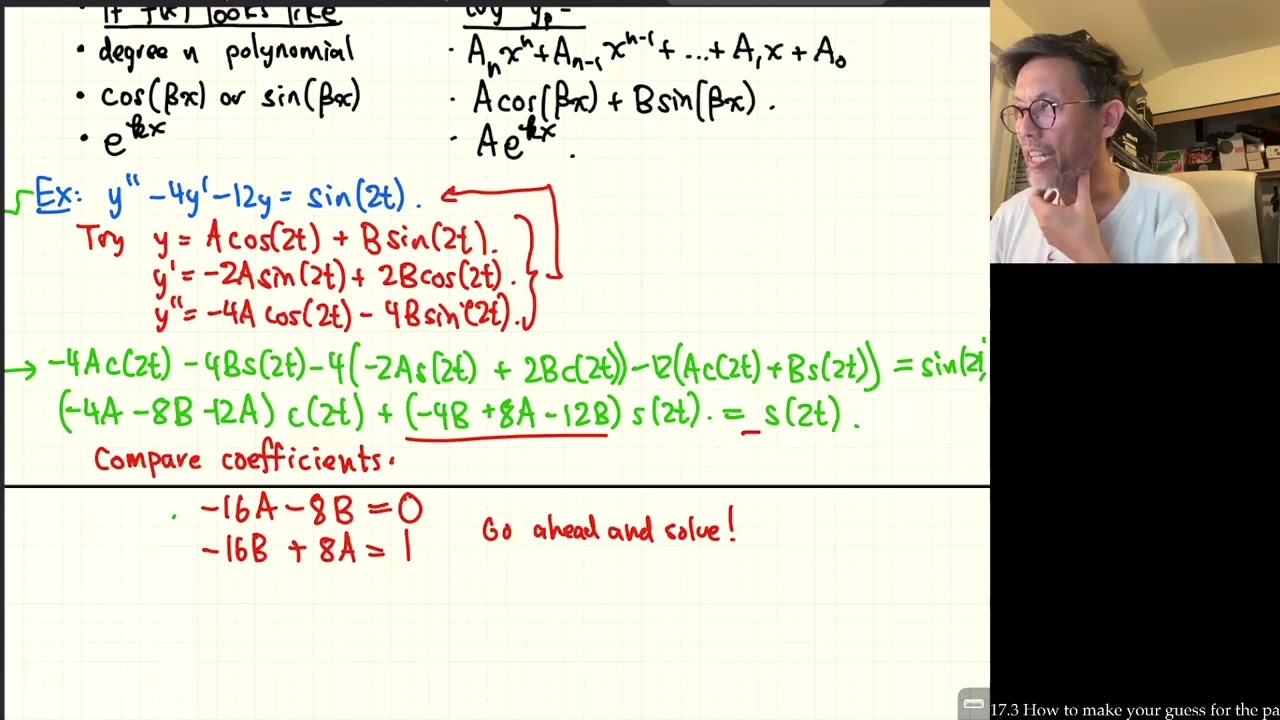 If f(x) looks like try yp =
• degree n polynomial · Aₙxⁿ + Aₙ₋₁xⁿ⁻¹ + ... + A₁x + A₀
• cos(βx) or sin(βx) · A cos(βx) + B sin(βx).
• e^kx · A e^kx.
Ex: y'' - 4y' - 12y = sin(2t).
Try y = A cos(2t) + B sin(2t).
y' = -2A sin(2t) + 2B cos(2t).
y'' = -4A cos(2t) - 4B sin(2t).
→ -4A c(2t) - 4B s(2t) - 4(-2A s(2t) + 2B c(2t)) - 12(A c(2t) + B s(2t)) = sin(2t)
(-4A - 8B - 12A) c(2t) + (-4B + 8A - 12B) s(2t). = s(2t).
Compare coefficients.
-16A - 8B = 0
-16B + 8A = 1
Go ahead and solve!
17.3 How to make your guess for the pa